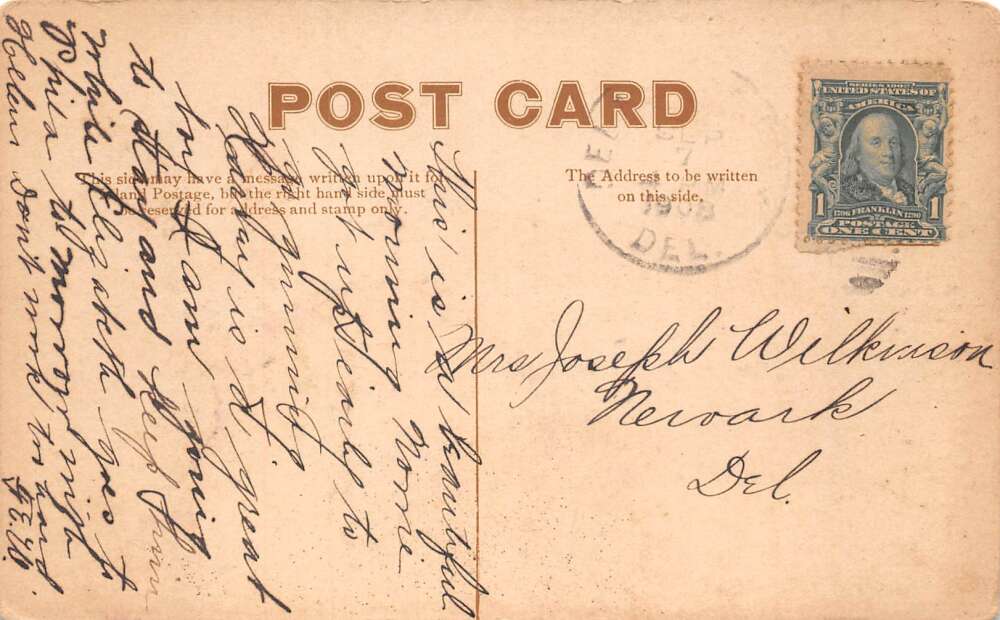 POST CARD
This side may have a message written upon it for
Inland Postage, but the right hand side must
be reserved for address and stamp only.
The Address to be written
on this side.
SERIES 1902
UNITED STATES OF
AMERICA
1 1706 FRANKLIN 1790 1
POSTAGE
ONE CENT
7
1908
DEL.
Mrs Joseph Wilkinson
Newark
Del.
This is a beautiful
morning
got up early to
go gunning.
is a great
boy I am going
to stay and keep him
while Elizabeth goes to
Phila to morrow night
Helen don't work to hard